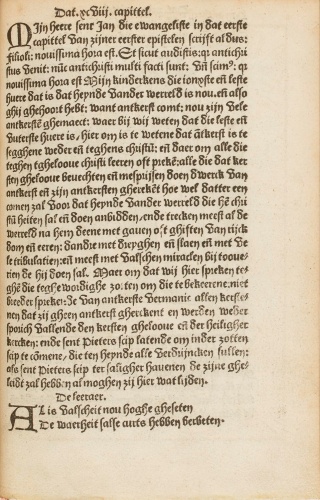 Dat. xcviij. capittel.
Mijn heere sent Jan die ewangeliste in dat eerste
capittel van zijner eerster epistelen scrijft aldus:
filioli: nouissima hora est. Et sicut audistis: qr antichri
stus venit: nūc antichristi multi facti sunt: Vñ scimꝰ: qr
nouissima hora est Mijn kinderkens die ionxste eñ leste
huere dat is dat heynde vander werelt is nou. eñ also
ghij ghehoort hebt: want antkerst comt: nou zijn vele
antkerstē ghemaect: waer bij wij weten dat die leste eñ
vuterste huere is, hier om is te wetene dat ātkerst is te
segghene weder eñ teghens christū: eñ daer om alle die
teghen tghelooue christi leeren oft prekē: alle die dat ker
sten ghelooue beuechten eñ mespijsen doen dwerck van
antkerst eñ zijn antkersten gherekēt hoe wel datter een
comen zal voor dat heynde vander werelt die hē chri
stū heiten sal eñ doen anbidden, ende trecken meest al de
werelt na hem deene met gauen oft ghiften van rijck
dom eñ eeren: dandre met dreyghen eñ slaen eñ met ve
le tribulatien: eñ meest met valschen miraclen bij tooue-
rien de hij doen sal. Maer om dat wij hier spreken te-
ghē die teghewordighe zotten om die te bekeerene. niet
breeder sprekēde van antkerste vermanic allen kerste-
nen dat zij gheen antkerst gherckent en werden weder
sporich vallende den kersten ghelooue eñ der heiligher
kercken: ende sent Pieters scip latende om inder zotten
scip te cōmene, die ten heynde alle verdrijncken sullen:
als sent Pieters scip ter saligher hauenen de zijne ghe-
leidt zal hebben al moghen zij hier wat lijden.
De leeraer.
Al is valscheit nou hoghe gheseten
De waerheit salse aurts hebben verbeten.